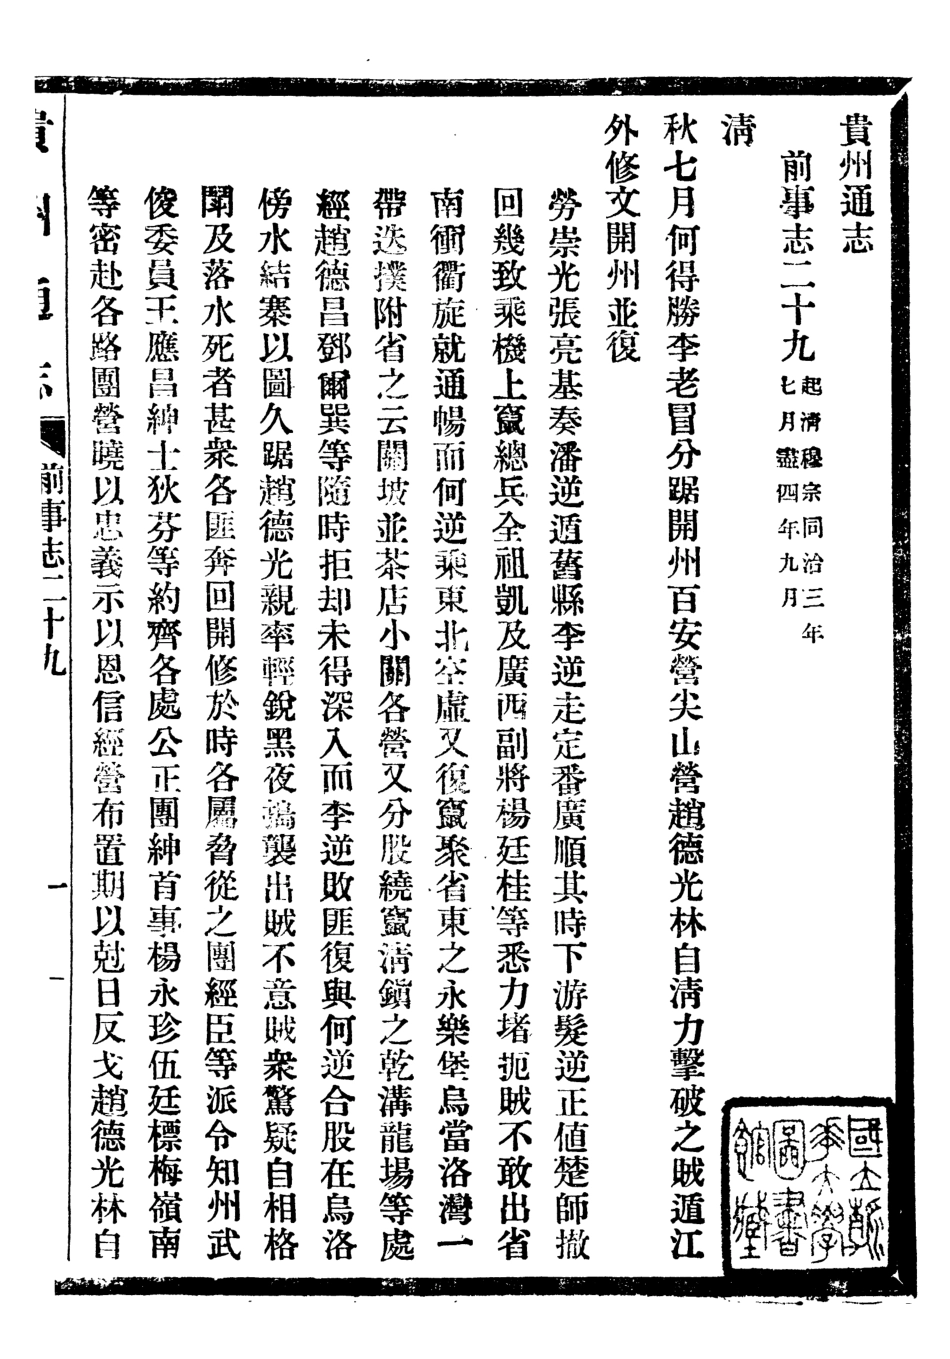 貴州通志
前事志二十九
起清穆宗同治三年
七月盡四年九月
清
秋七月何得勝李老冒分踞開州百安營尖山營趙德光林自清力擊破之賊遁江
外修文開州並復
勞崇光張亮基奏潘逆遁舊縣李逆走定番廣順其時下游髮逆正値楚師撤
回幾致乘機上竄總兵全祖凱及廣西副將楊廷桂等悉力堵扼賊不敢出省
南衝衢旋就通暢而何逆乘東北空虛又復竄聚省東之永樂堡烏當洛灣一
帶迭撲附省之云關坡並茶店小關各營又分股繞竄清鎭之乾溝龍場等處
經趙德昌鄧爾巽等隨時拒却未得深入而李逆敗匪復與何逆合股在烏洛
傍水結寨以圖久踞趙德光親率輕銳黑夜搗襲出賊不意賊衆驚疑自相格
鬭及落水死者甚衆各匪奔回開修於時各屬脅從之團經臣等派令知州武
俊委員王應昌紳士狄芬等約齊各處公正團紳首事楊永珍伍廷標梅嶺南
等密赴各路團營曉以忠義示以恩信經營布置期以尅日反戈趙德光林自
貴州通志
前事志二十九
一
國立
華大學
圖書
館藏